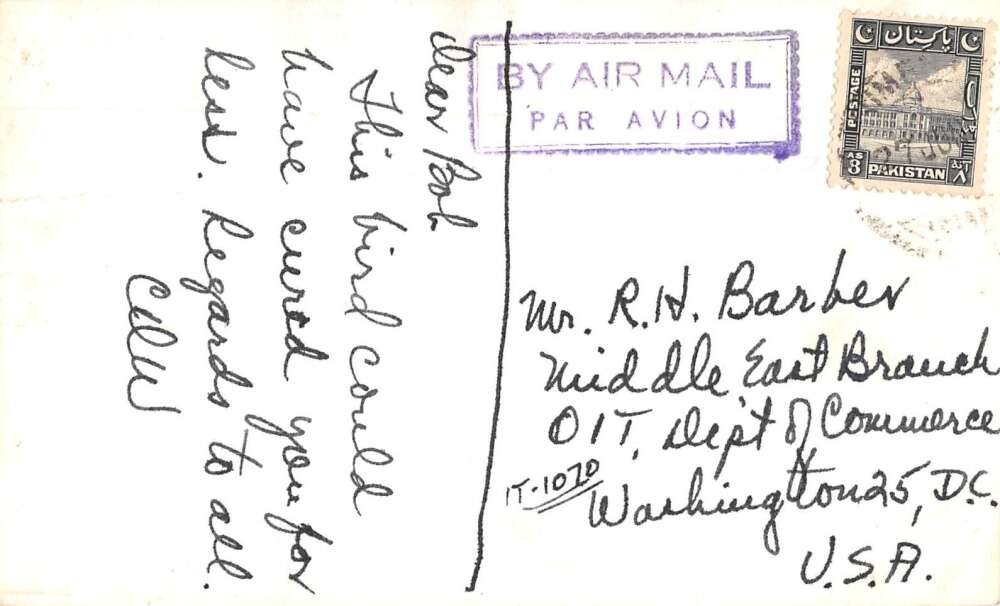 Dear Bob
This bird could
have cured you for
less. Regards to all.
BY AIR MAIL
PAR AVION
پاکستان
POSTAGE
AS 8
PAKISTAN
Mr. R.H. Barber
Middle East Branch
OIT, Dep't of Commerce
IT-1070
Washington 25, D.C.
U.S.A.